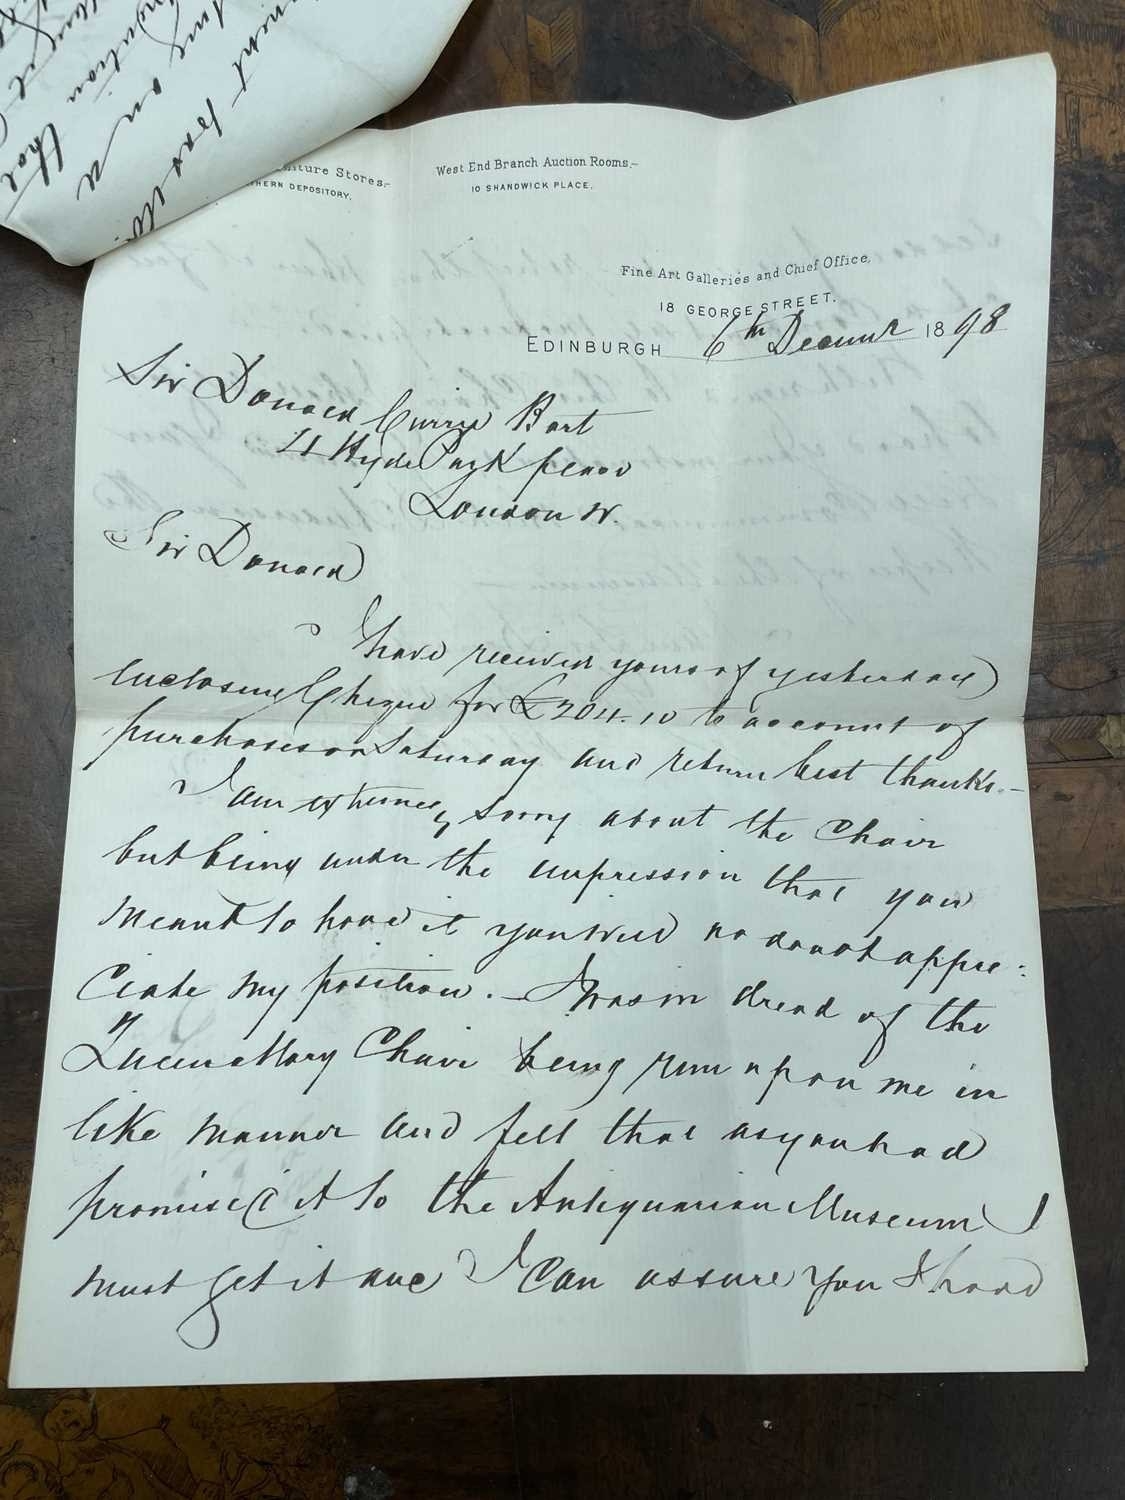 niture Stores.–
HERN DEPOSITORY.
West End Branch Auction Rooms.–
10 SHANDWICK PLACE.
Fine Art Galleries and Chief Office,
18 GEORGE STREET.
EDINBURGH 6th Decemr 1898
Sir Donald Currie Bart
4 Hyde Park place
London W.
Sir Donald
I have received yours of yesterday
enclosing Cheque for £204.10 to account of
purchases on Saturday and return best thanks.–
I am extremely sorry about the Chair
but being under the impression that you
meant to have it you will no doubt appre:
ciate my position. – I was in dread of the
Queen Mary Chair being run upon me in
like manner and felt that as you had
promised it to the Antiquarian Museum I
must get it and I can assure you I had